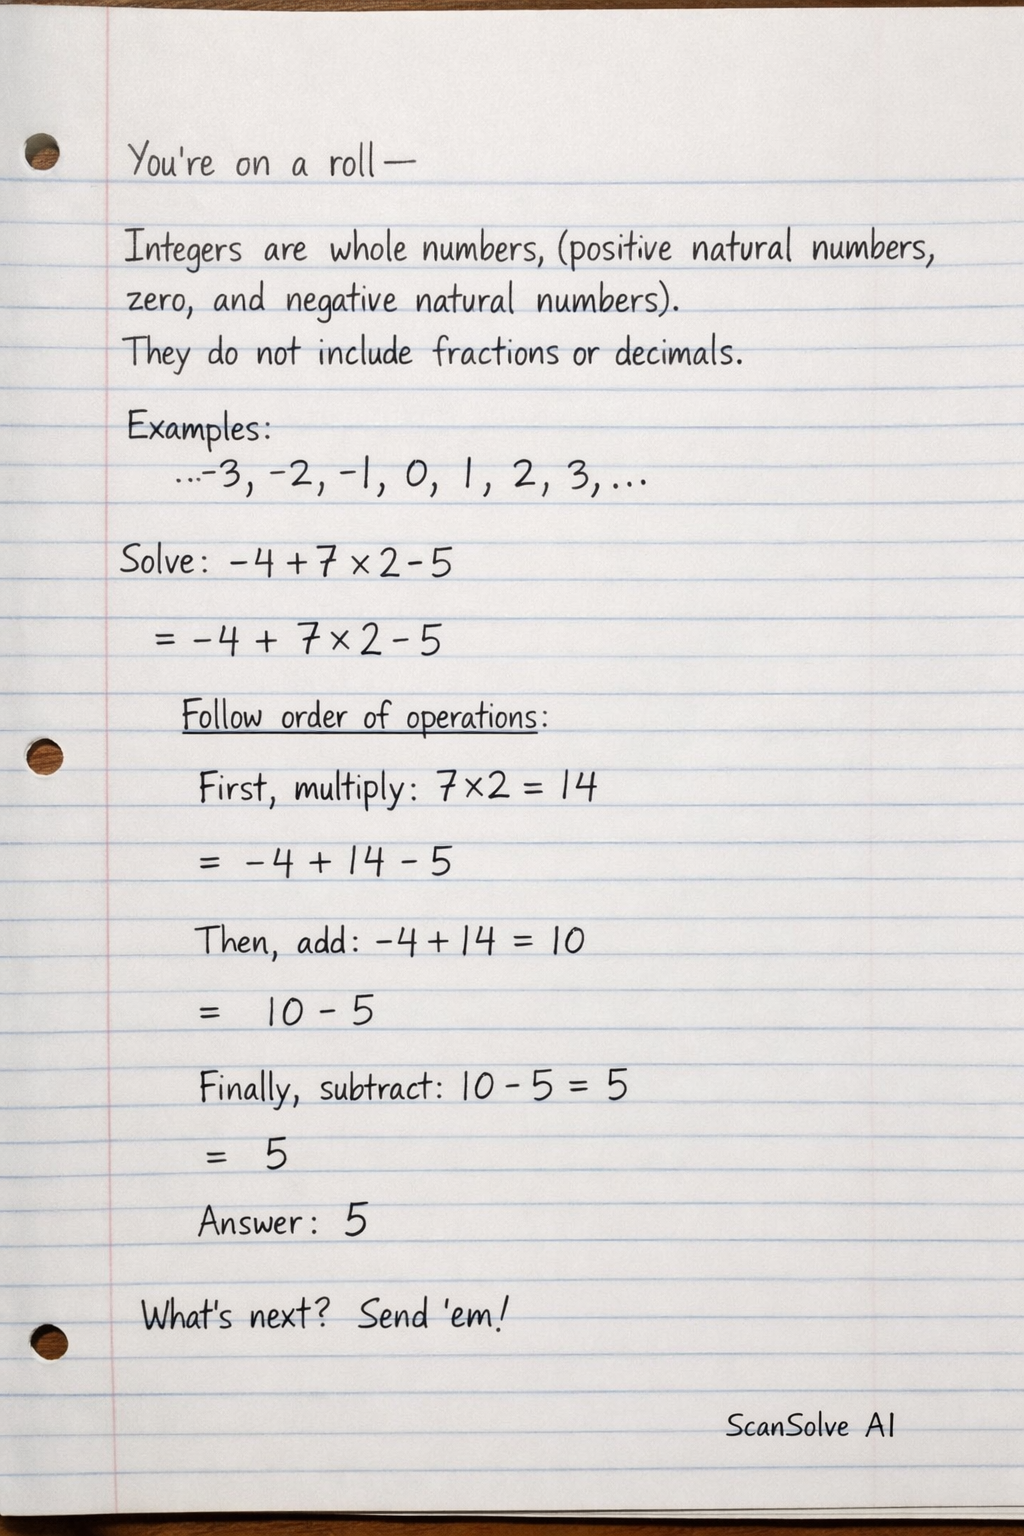 You're on a roll—
Integers are whole numbers, (positive natural numbers,
zero, and negative natural numbers).
They do not include fractions or decimals.
Examples:
...-3, -2, -1, 0, 1, 2, 3,...
Solve: -4+7×2-5
= -4 + 7×2-5
Follow order of operations:
First, multiply: 7×2 = 14
= -4 + 14 - 5
Then, add: -4+14 = 10
= 10 - 5
Finally, subtract: 10-5 = 5
= 5
Answer: 5
What's next? Send 'em!
ScanSolve AI